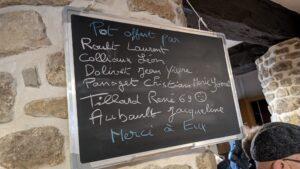 Pot offert par
Rault Laurent
Collioux Léon
Dolivet Jean Yves
Panaget Christian Marie Yvonne
Tillard René 69 ☺
Aubault Jacqueline
Merci à Eux